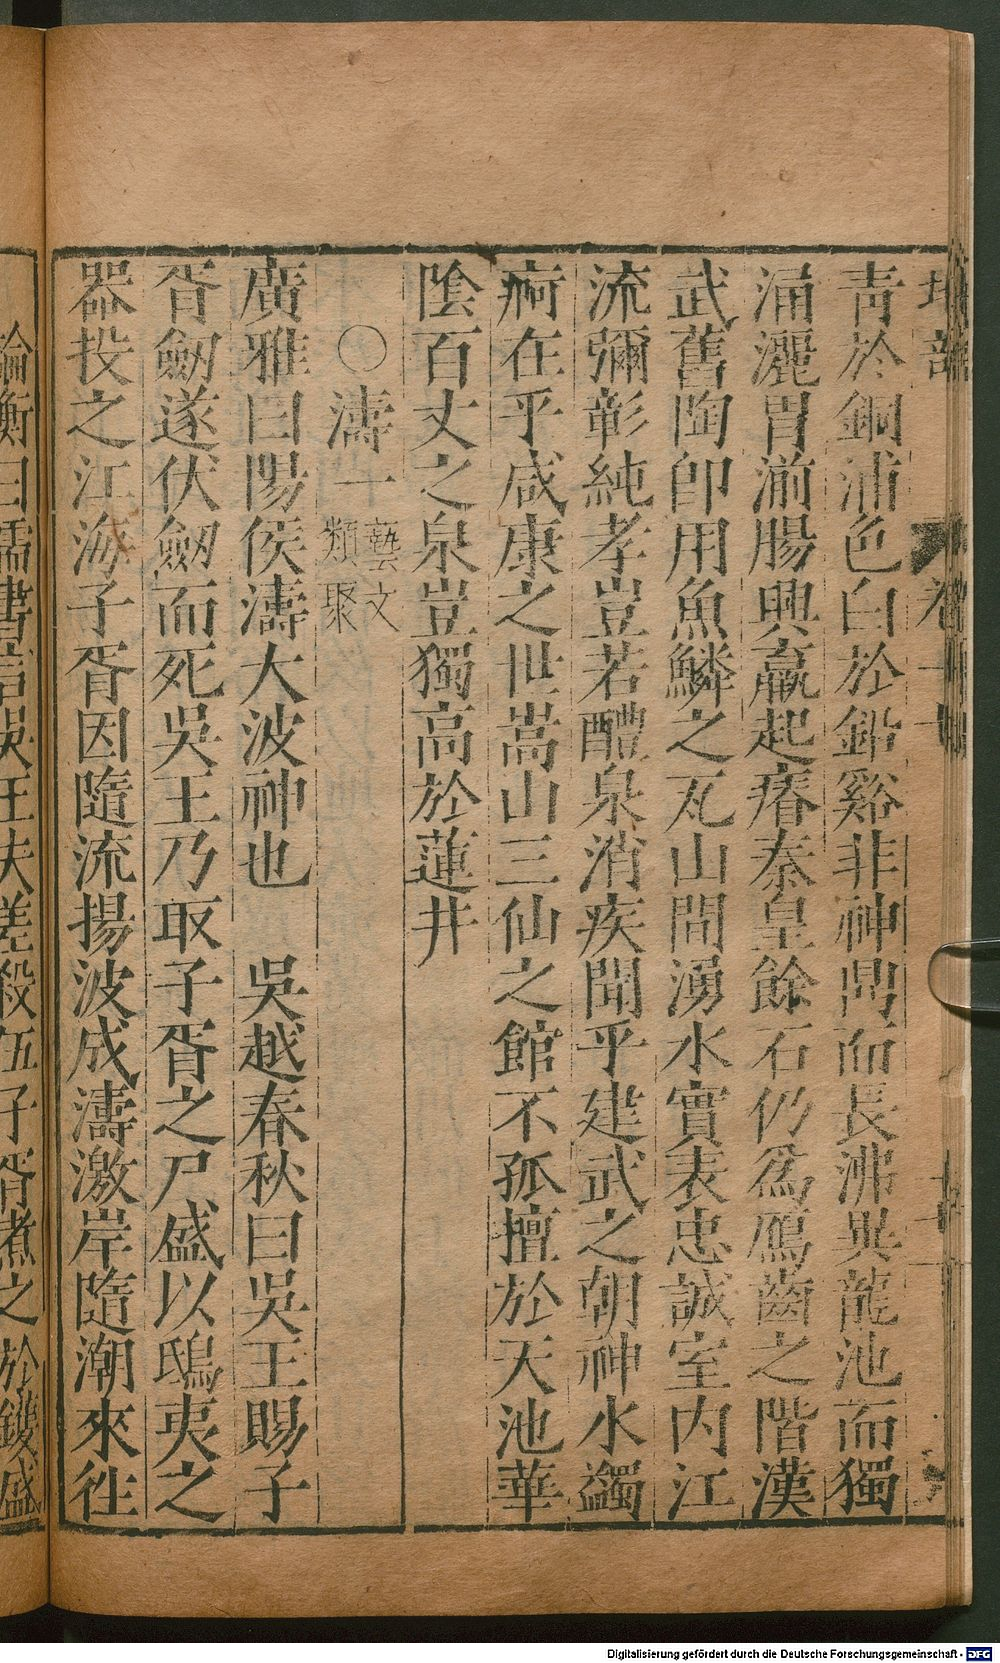 青於銅浦色白於鉛谿非神鼎而長沸異龍池而獨
涌灑胃湔腸興羸起瘠秦皇餘石仍爲鴈齒之階漢
武舊陶卽用魚鱗之瓦山間湧水實表忠誠室内江
流彌彰純孝豈若醴泉消疾聞乎建武之朝神水蠲
痾在乎咸康之世嵩山三仙之館不孤擅於天池華
陰百丈之泉豈獨高於蓮井
〇濤一藝文類聚
廣雅曰陽侯濤大波神也　吳越春秋曰吳王賜子
胥劒遂伏劒而死吳王乃取子胥之尸盛以鴟夷之
器投之江海子胥因隨流揚波成濤激岸隨潮來徃
論衡曰儒書言吳王夫差殺伍子胥煮之於鑊盛
Digitalisierung gefördert durch die Deutsche Forschungsgemeinschaft - DFG